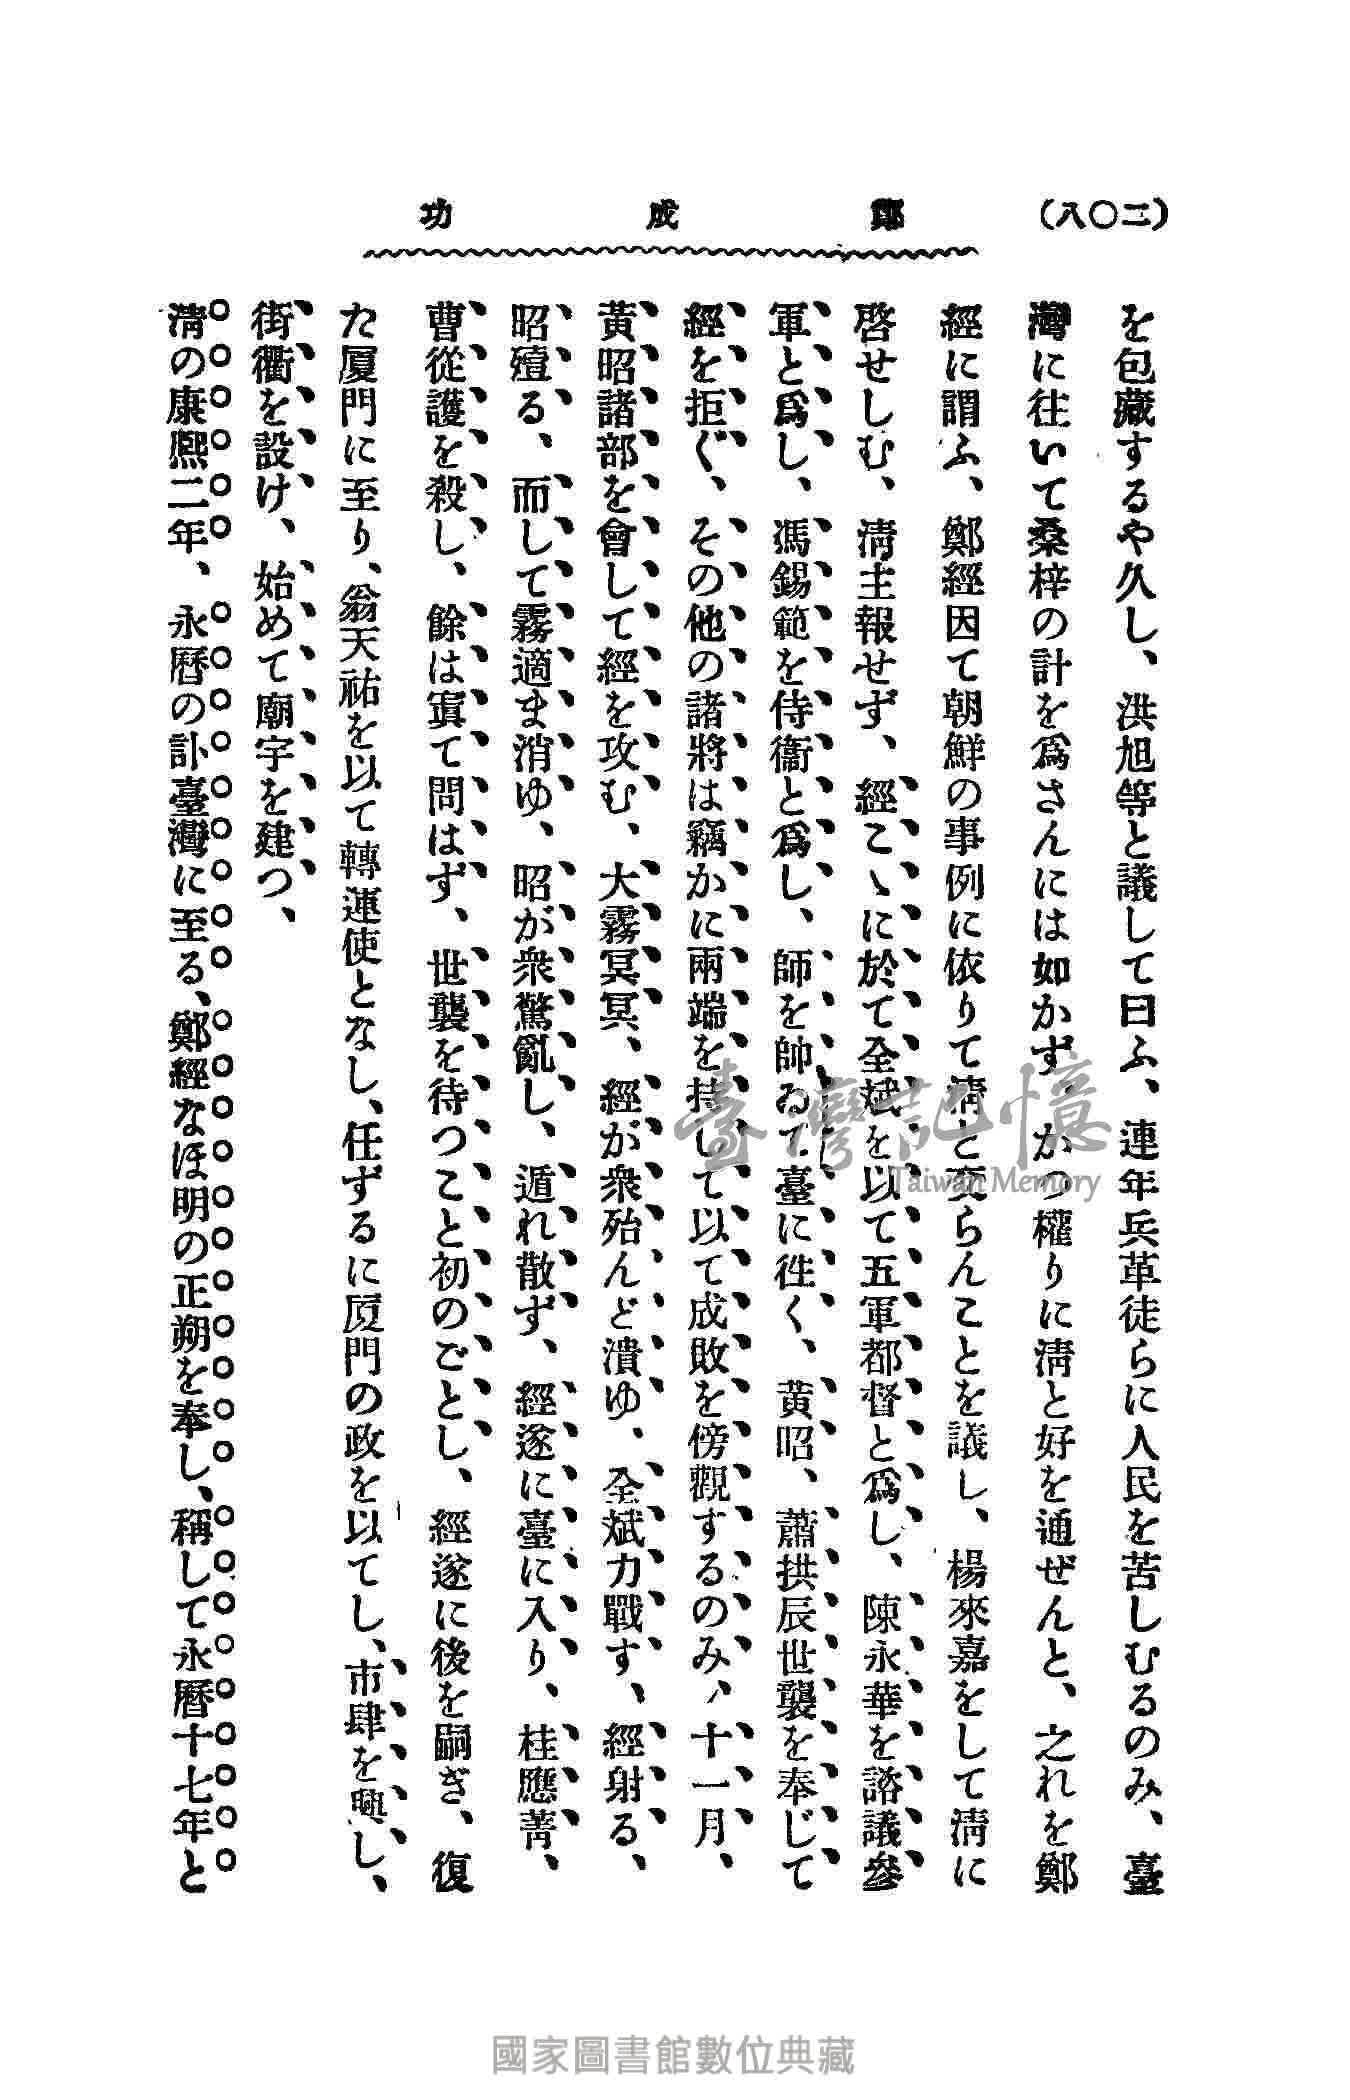 (二〇八)
鄭成功
を包藏するや久し、洪旭等と議して曰ふ、連年兵革徒らに人民を苦しむるのみ、臺
灣に往いて桑梓の計を爲さんには如かず、かつ權りに淸と好を通ぜんと、之れを鄭
經に謂ふ、鄭經因て朝鮮の事例に依りて淸と交らんことを議し、楊來嘉をして淸に
啓せしむ、淸主報せず、經こゝに於て全斌を以て五軍都督と爲し、陳永華を諮議參
軍と爲し、馮錫範を侍衞と爲し、師を帥ゐて臺に徃く、黃昭、蕭拱辰世襲を奉じて
經を拒ぐ、その他の諸將は竊かに兩端を持して以て成敗を傍觀するのみ、十一月、
黃昭諸部を會して經を攻む、大霧冥冥、經が衆殆んど潰ゆ、全斌力戰す、經射る、
昭殪る、而して霧適ま消ゆ、昭が衆驚亂し、遁れ散ず、經遂に臺に入り、桂應菁、
曹從護を殺し、餘は寘て問はず、世襲を待つこと初のごとし、經遂に後を嗣ぎ、復
た厦門に至り、翁天祐を以て轉運使となし、任ずるに厦門の政を以てし、市肆を興し、
街衢を設け、始めて廟宇を建つ、
淸の康熙二年、永曆の訃臺灣に至る、鄭經なほ明の正朔を奉し、稱して永曆十七年と
臺灣記憶
Taiwan Memory
國家圖書館數位典藏